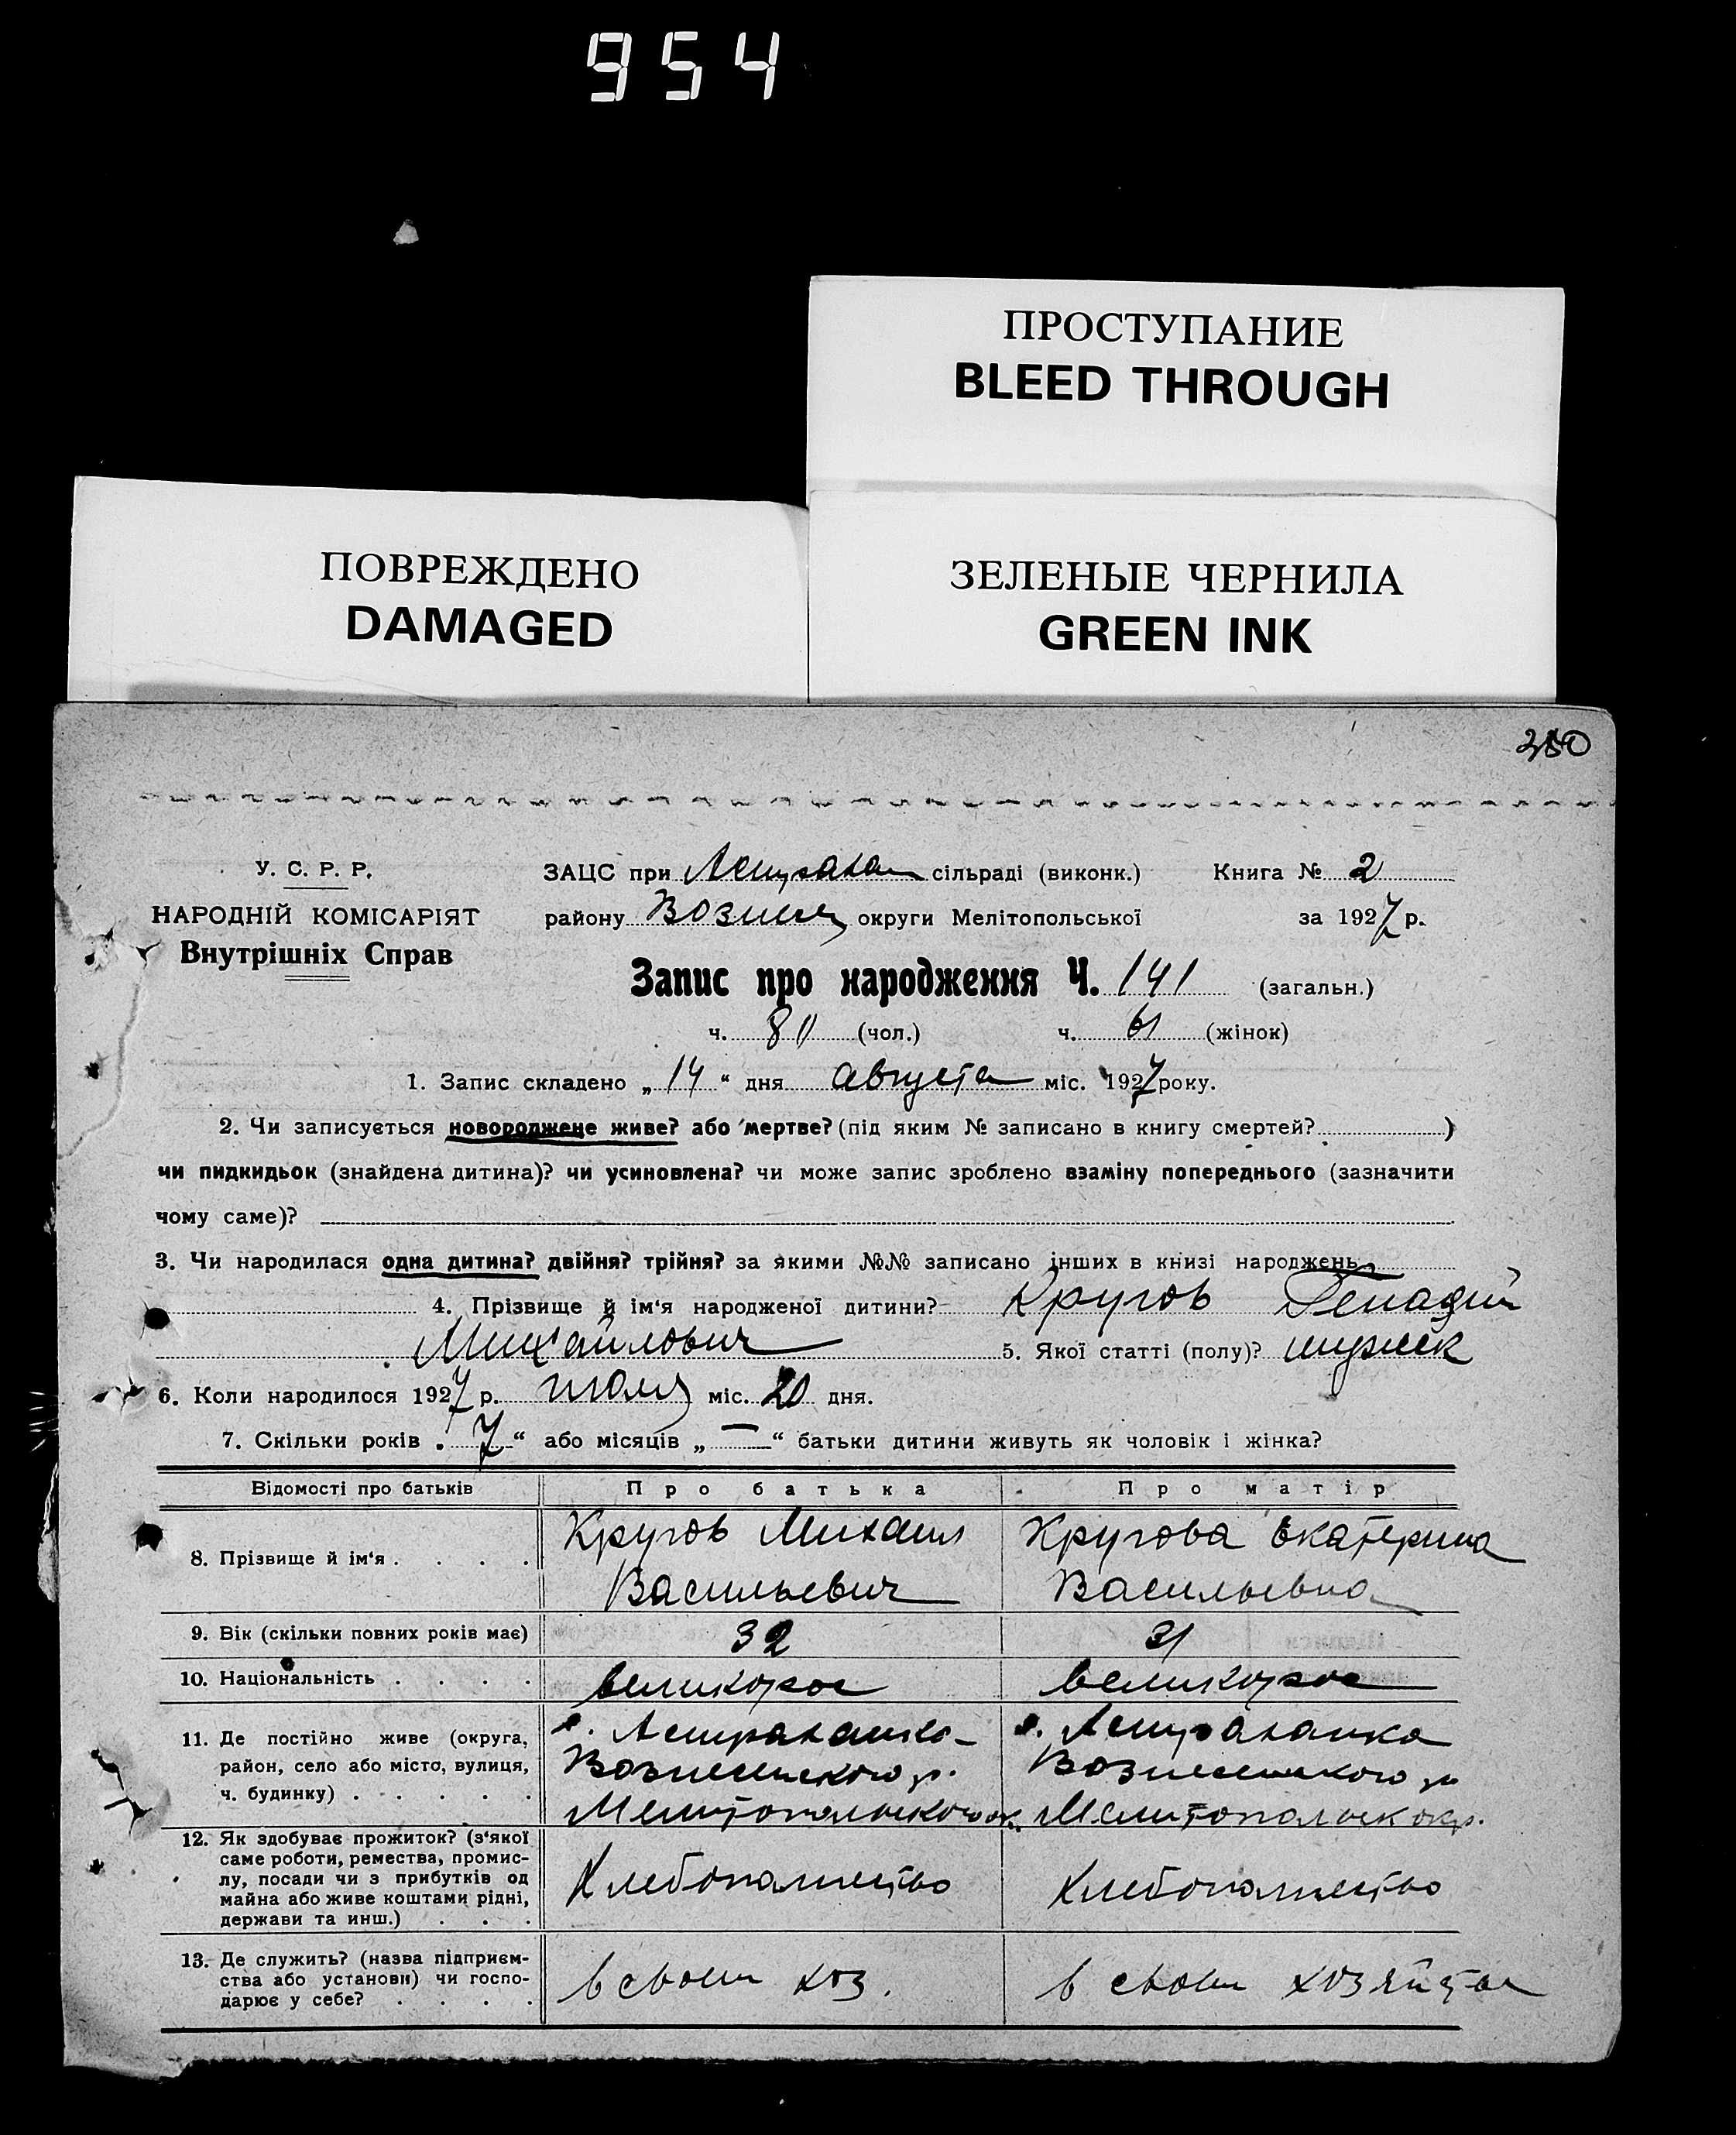 954
ПРОСТУПАНИЕ
BLEED THROUGH
ПОВРЕЖДЕНО
DAMAGED
ЗЕЛЕНЫЕ ЧЕРНИЛА
GREEN INK
У. С. Р. Р.
НАРОДНІЙ КОМІСАРІЯТ
Внутрішніх Справ
ЗАЦС при Астрахан сільраді (виконк.) Книга № 2
району Вознесен округи Мелітопольської за 1927 р.
Запис про народження Ч. 141 (загальн.)
ч. 80 (чол.) ч. 61 (жінок)
1. Запис складено „ 14 “ дня августа міс. 1927 року.
2. Чи записується новороджене живе? або мертве? (під яким № записано в книгу смертей? )
чи пидкидьок (знайдена дитина)? чи усиновлена? чи може запис зроблено взаміну попереднього (зазначити
чому саме)?
3. Чи народилася одна дитина? двійня? трійня? за якими №№ записано інших в книзі народжень
4. Прізвище й ім‘я народженої дитини? Кругов Генадий
Михайлович 5. Якої статті (полу)? мужск
6. Коли народилося 1927 р. июля міс. 20 дня.
7. Скільки років „ 7 “ або місяців „ — “ батьки дитини живуть як чоловік і жінка?
Відомості про батьків Про батька Про матір
8. Прізвище й ім‘я . . . . Кругов Михаил Кругова Екатерина
Васильевич Васильевна
9. Вік (скільки повних років має) 32 31
10. Національність . . . . великорос великорос
11. Де постійно живе (округа, с. Астраханка с. Астраханка
район, село або місто, вулиця, Вознесенского р. Вознесенского р
ч. будинку) . . . . . Мелитопольского ок. Мелитопольск окр.
12. Як здобуває прожиток? (з‘якої
саме роботи, ремества, промис-
лу, посади чи з прибутків од Хлебопашество Хлебопашество
майна або живе коштами рідні,
держави та инш.) . . .
13. Де служить? (назва підприєм-
ства або установи) чи госпо- в своем хоз. в своем хозяйстве
дарює у себе? . . . .